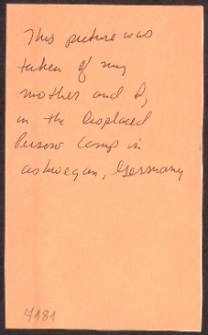 This picture was
taken of my
mother and I,
in the Displaced
Person Camp in
Germany
7181